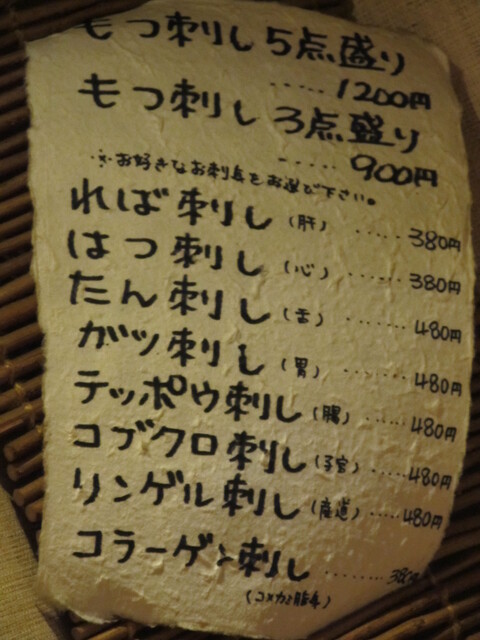 もつ刺し5点盛り
‥‥‥1200円
もつ刺し3点盛り
‥‥‥900円
※お好きなお刺身をお選び下さい。
ればば刺し(肝)‥‥‥380円
はつ刺し(心)‥‥‥380円
たん刺し(舌)‥‥‥480円
ガツ刺し(胃)‥‥‥480円
テッポウ刺し(腸)‥‥‥480円
コブクロ刺し(子宮)‥‥‥480円
リンゲル刺し(産道)‥‥‥480円
コラーゲン刺し‥‥‥‥380円
(コメカミ脂身)